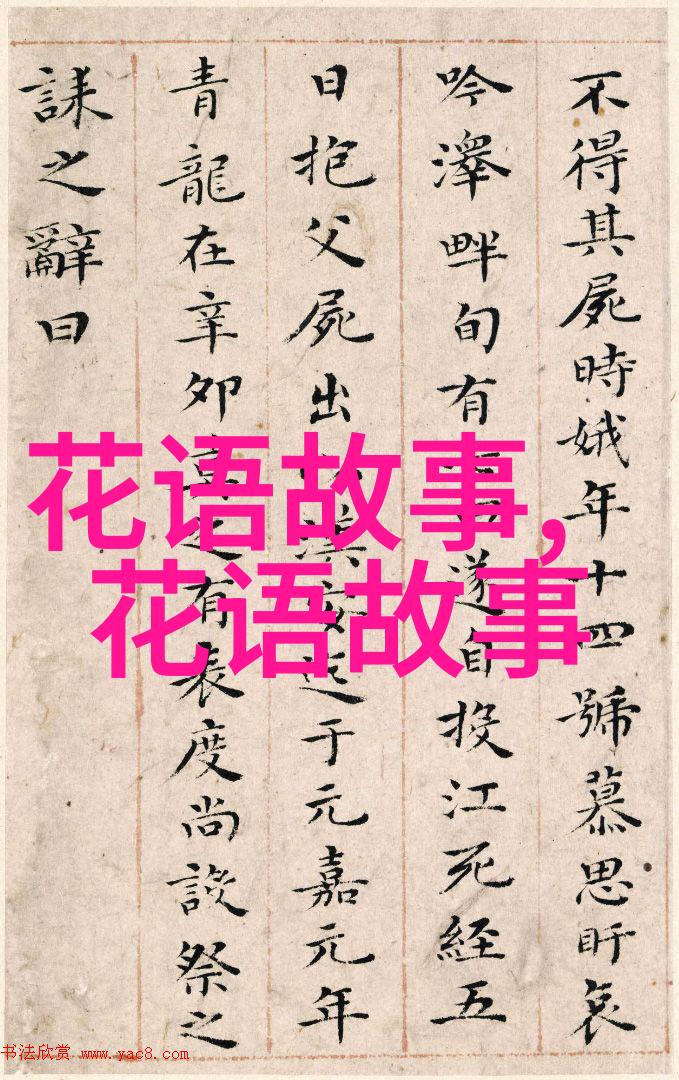 不得其屍時娥年十四號慕思盱哀
吟澤畔旬有遂自投江死經五
日抱父屍出漢安迄于元嘉元年
青龍在辛卯莫之有表度尚設祭之
誄之辭曰
花语故事,
花语故事
书法欣赏 www.yac8.com